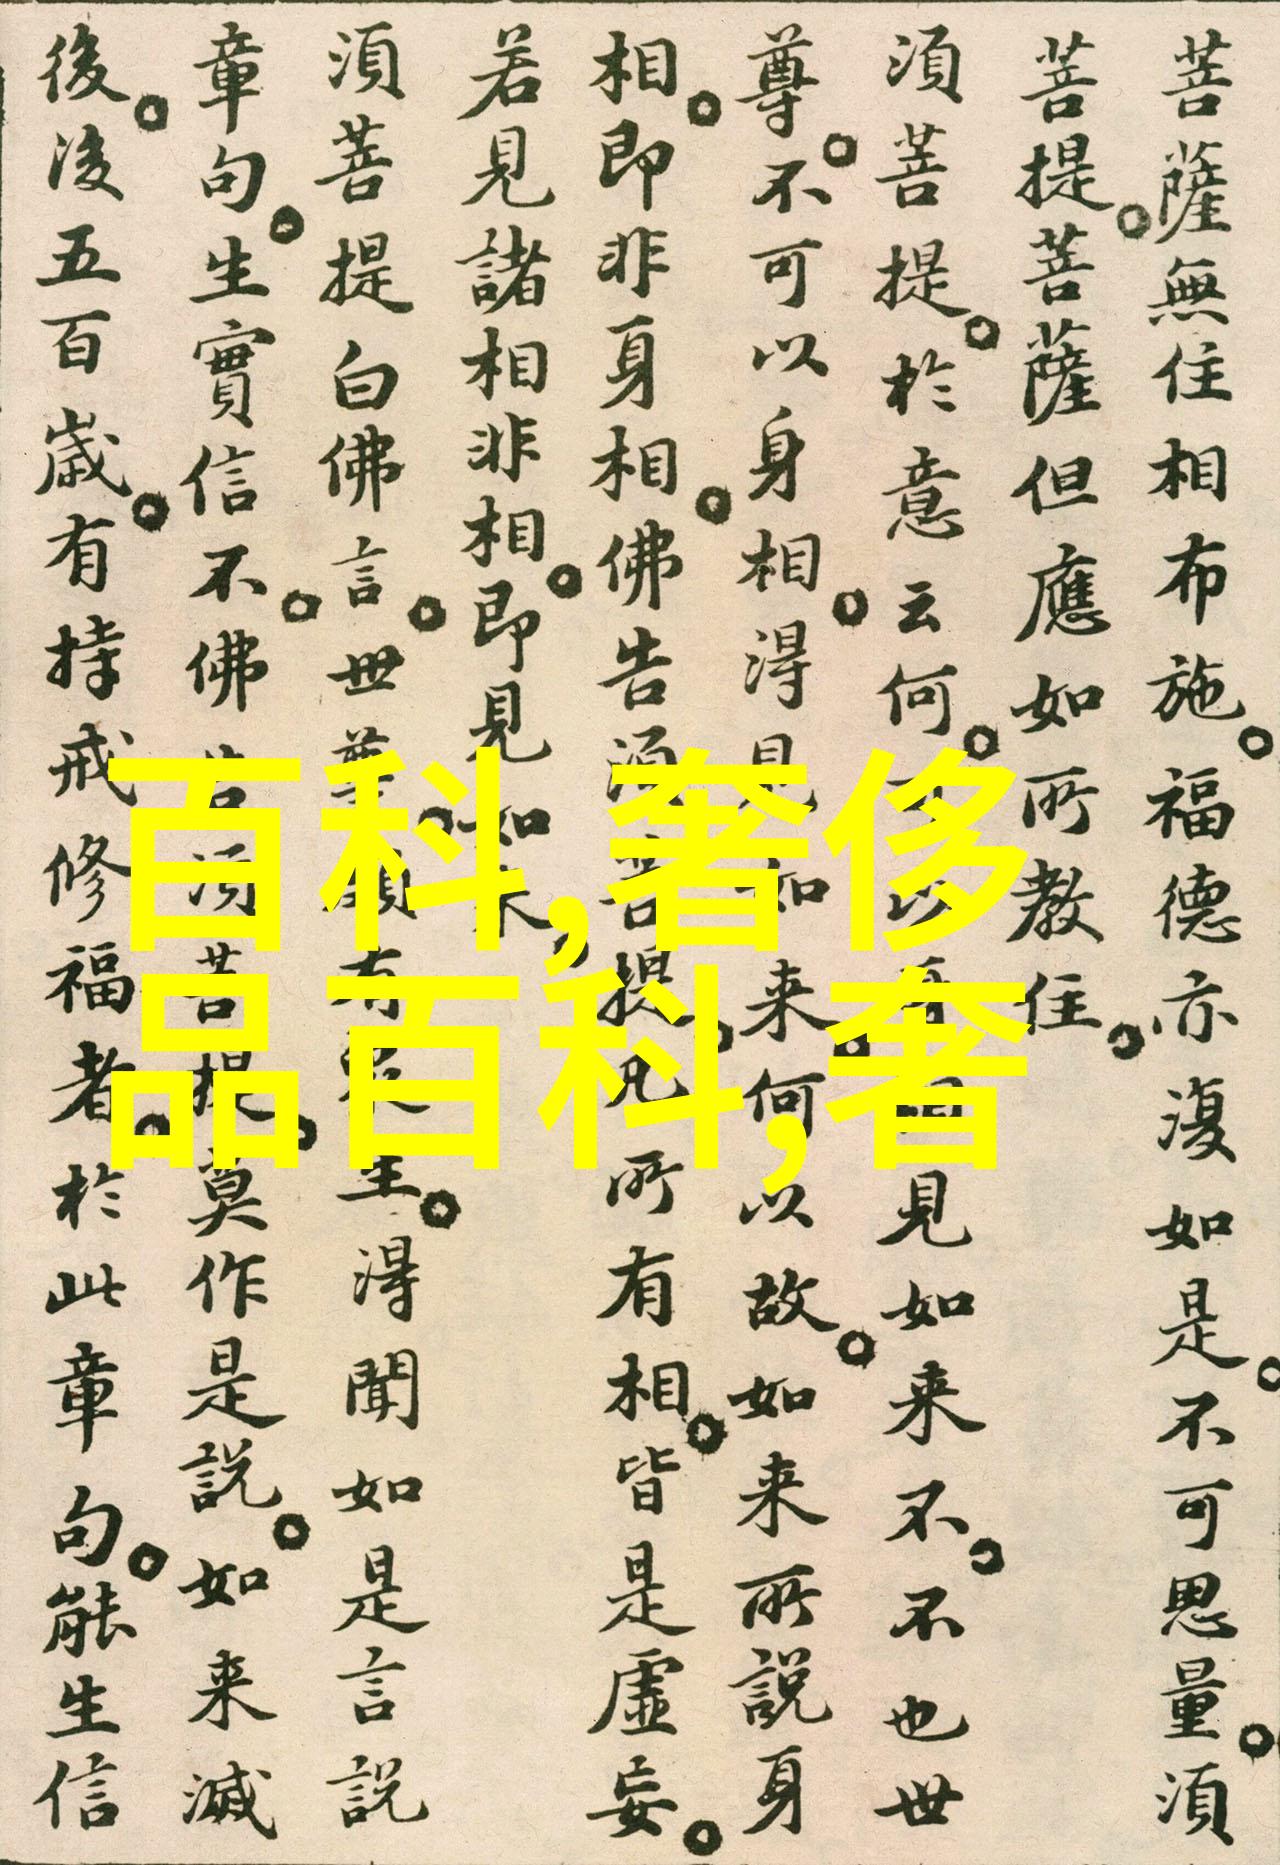 菩薩無住相布施。福德亦復如是。不可思量。須
菩提。菩薩但應如所教住。
須菩提。於意云何。可以身相見如来不。不也世
尊。不可以身相。得見如来。何以故。如来所說身
相。即非身相。佛告須菩提。凡所有相。皆是虛妄。
若見諸相非相。即見如来。
須菩提白佛言。世尊。頗有眾生。得聞如是言說
章句。生實信不。佛告須菩提。莫作是說。如来滅
後。後五百歲。有持戒修福者。於此章句。能生信
百科,奢侈
品百科,奢